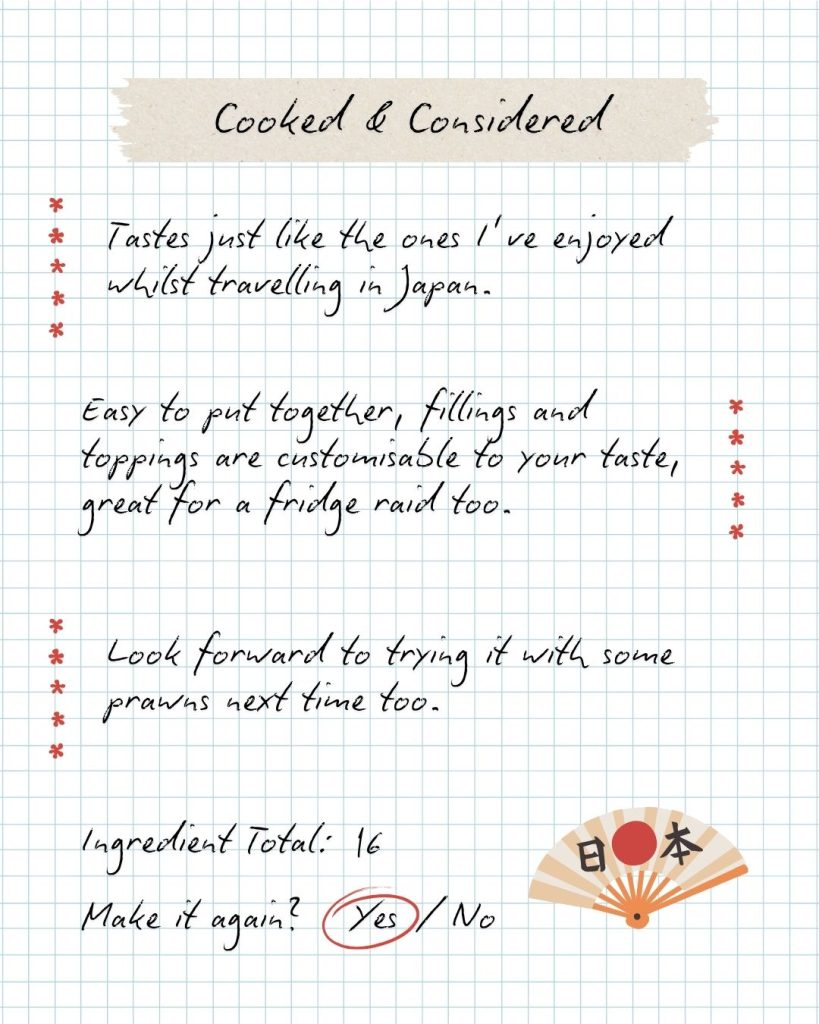 Cooked & Considered
Tastes just like the ones I've enjoyed
whilst travelling in Japan.
Easy to put together, fillings and
toppings are customisable to your taste,
great for a fridge raid too.
Look forward to trying it with some
prawns next time too.
Ingredient Total: 16
日本
Make it again? Yes / No